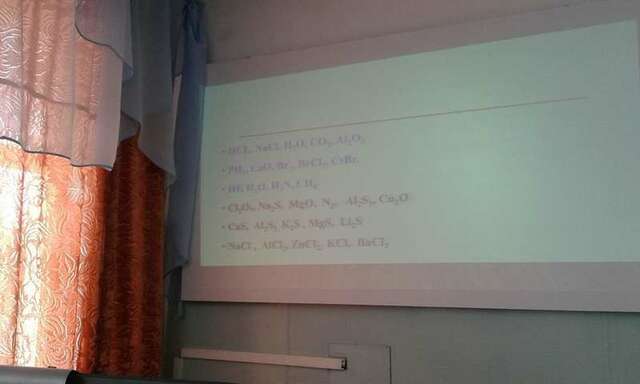 • HCl, NaCl, H₂O, CO₂, Al₂O₃
• PH₃, CaO, BrCl₃, CrBr
• HF, H₂O, H₃N,
• Cl₂O₇, Na₂S, MgO, N₂, Al₂S₃, Cu₂O
• CaS, Al₂S₃, K₂S, MgS, Li₂S
• NaCl, AlCl₃, ZnCl₂, KCl, BaCl₂